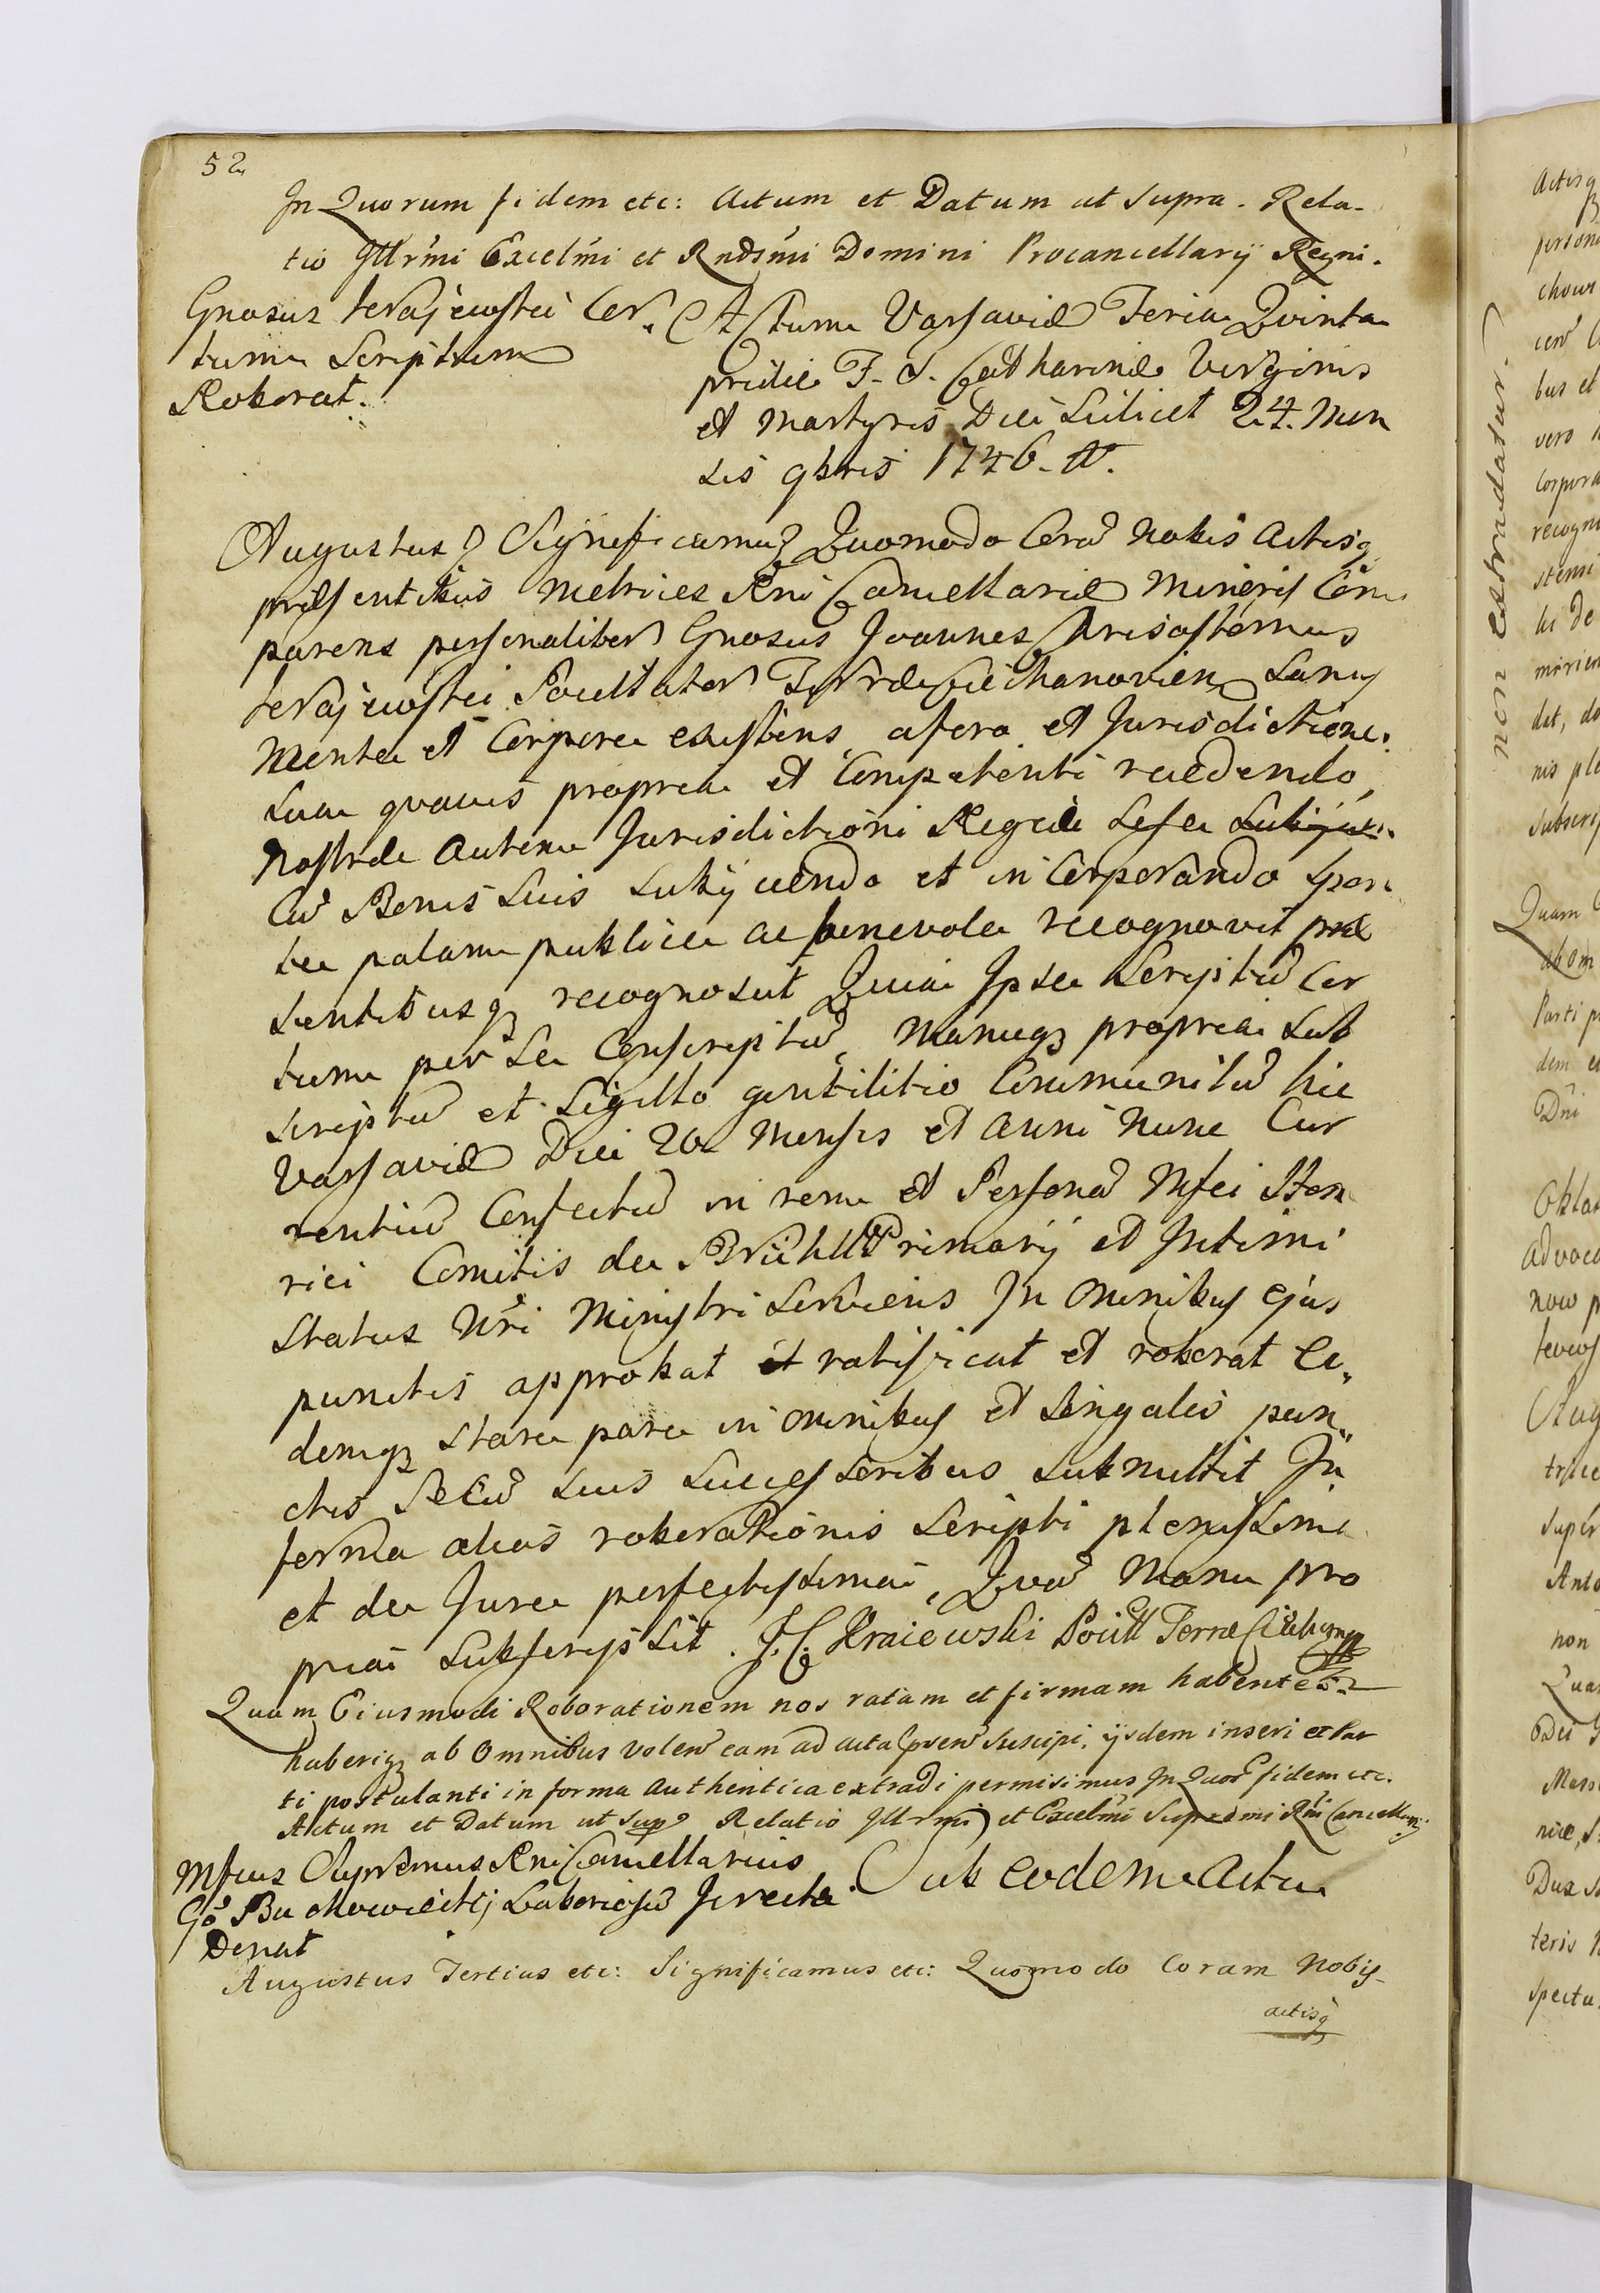 52
In Quorum fidem etc: Actum et Datum ut supra. Rela-
tio Illrmi Excelmi et Rndsmi Domini Procancellarij Regni.
Gnosus Krajewski Cer
tum Scriptum
Roborat.
Actum Varsaviæ Feria Quinta
pridie F. S. Catharinæ Virginis
et Martyris Die Scilicet 24. Men
sis 9bris 1746. A.
Augustus 3 Significamus Quomodo Corā Nobis Actisq
præsentibus Metrices Rni Cancellariæ Minoris Com
parens personaliter Gnosus Joannes Chrisostomus
Krajewski Pocillator Terræ Ciechanovien Sanus
Mente et Corpore existens, a foro et Jurisdictione
sua quavis propria et Competenti recedendo,
Nostræ autem Jurisdictioni Regiæ Sese Subijcie
Cū Bonis Suis Subijciendo et incorporando Spon
te palam publice ac benevole recognovit præ
sentibusq recognoscit Quia Ipse Scriptū Cer
tum per Se Conscriptū, Manuq propria Sub
scriptū et Sigillo gentilitio Communitū hic
Varsaviæ Die 20 Mensis et Anni Nunc Cur
rentiū Confectū in rem et Personā Mfci Hen
rici Comitis de Brühl Primarij et Intimi
Status Nri Ministri Serviens In Omnibus ejus
punctis approbat et ratificat et roborat Ei,
demq Stare pare in omnibus et Singulis pun,
ctis Se Cū Suis Successoribus Submittit In
forma alias roborationis Scripti plenissima
et de Jure perfectissima, Quā Manu pro
pria Subscripsit. J. C. Kraiewski Pocill Terræ Ciechanov
Quam Eiusmodi Roborationem nos ratam et firmam habentes
haberiq ab Omnibus volen eam ad acta pnen Suscipi, ijsdem inseri et Par
ti postulanti in forma Authentica extradi permisimus In Quor fidem etc.
Actum et Datum ut Sup Relatio Illrmi et Excelmi Supremi Rni Cancellarij
Mfcus Supremus Rni Cancellarius
Go Buchowiecki Laboriosū
Donat
Sub eodem Actu
Augustus Tertius etc: Significamus etc: Quomodo Coram Nobis
actisq
non extradatur.